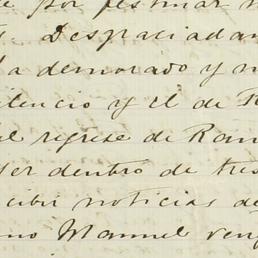 e por festinar
Despraciadam
a demorado y n
ilencio y el de R
el regreso de Ram
er dentro de tres
cibir noticias de
no Manuel ven